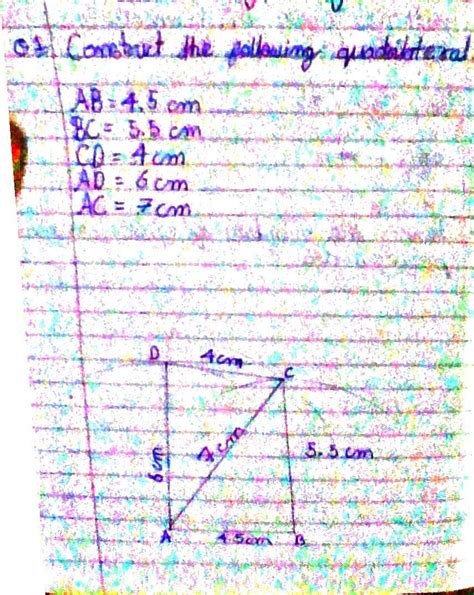 Q1 Construct the following quadilateral.
AB = 4.5 cm
BC = 5.5 cm
CD = 4 cm
AD = 6 cm
AC = 7 cm
D 4cm C
6cm
5.5 cm
A 4.5cm B